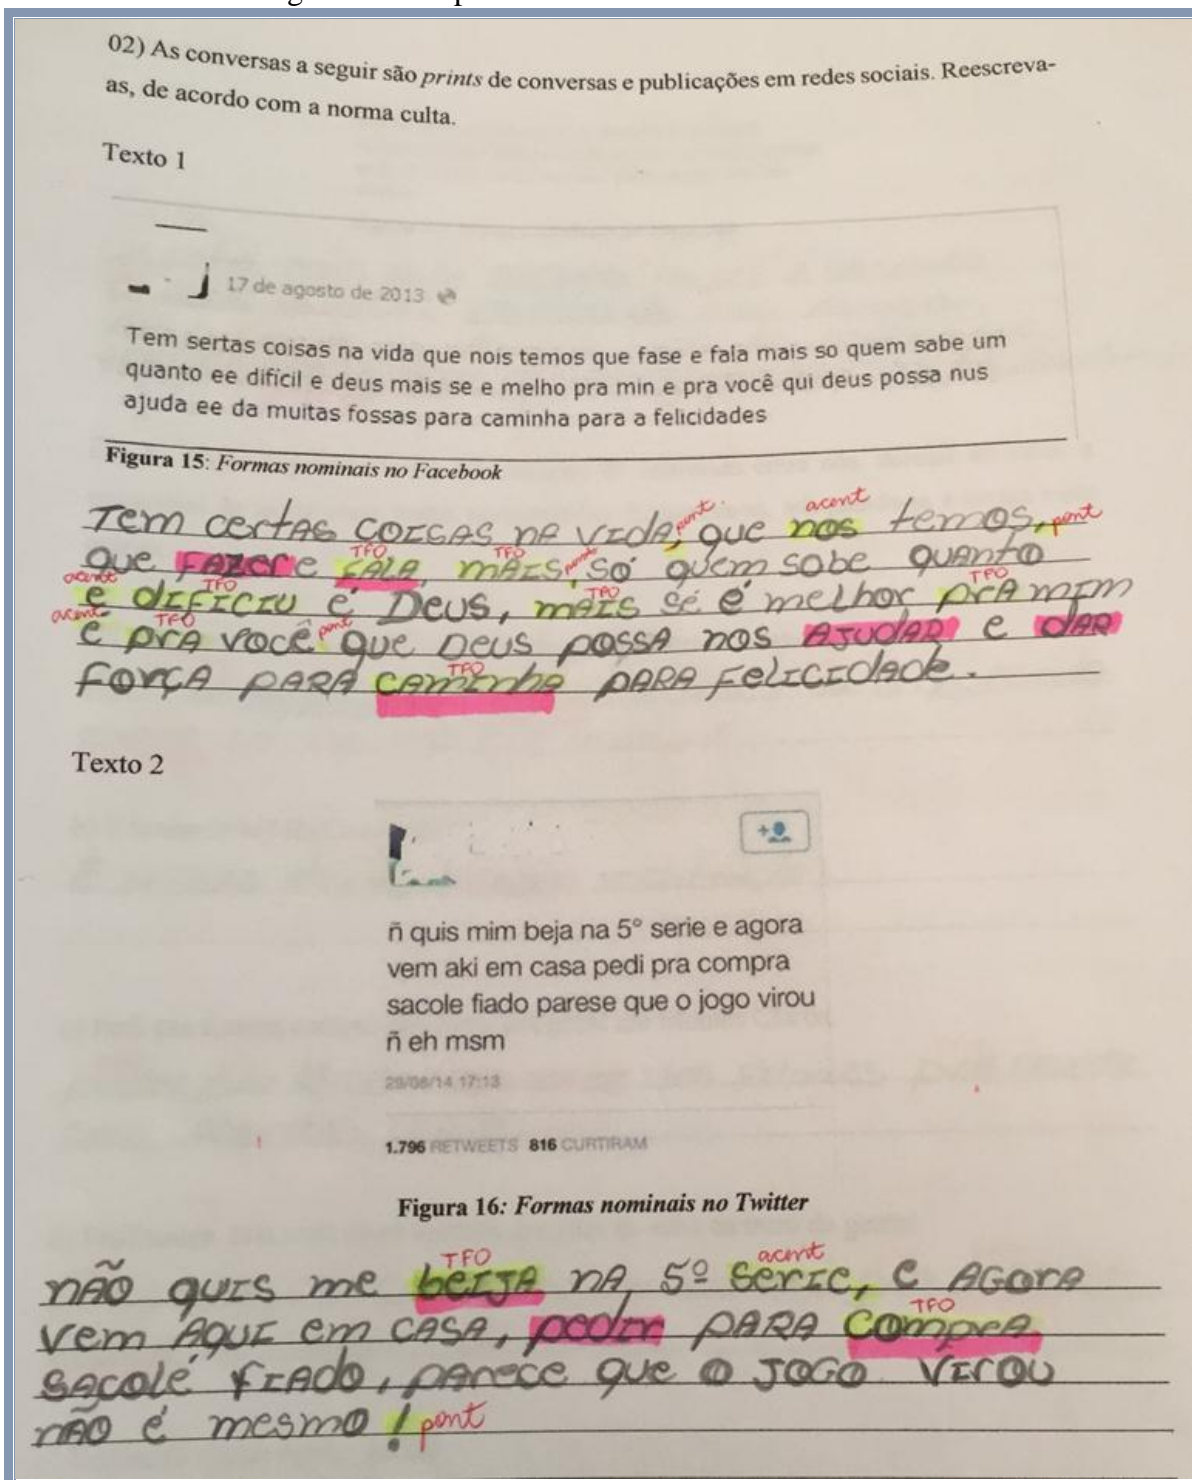 02) As conversas a seguir são prints de conversas e publicações em redes sociais. Reescreva-
as, de acordo com a norma culta.
Texto 1
17 de agosto de 2013
Tem sertas coisas na vida que nois temos que fase e fala mais so quem sabe um
quanto ee difícil e deus mais se e melho pra min e pra você qui deus possa nus
ajuda ee da muitas fossas para caminha para a felicidades
Figura 15: Formas nominais no Facebook
pont acent
Tem certas coisas na vida, que nos temos, pont
TFO TFO pont
que fazer e fala, mais, só quem sabe quanto
acent TFO TFO TFO
e dificiu é Deus, mais se é melhor pra mim
acent TFO pont
e pra você que Deus possa nos ajudar e dar
TFO
força para caminha para felicidade.
Texto 2
ñ quis mim beja na 5° serie e agora
vem aki em casa pedi pra compra
sacole fiado parese que o jogo virou
ñ eh msm
29/06/14 17:13
1.796 RETWEETS 816 CURTIRAM
Figura 16: Formas nominais no Twitter
TFO acent
não quis me beija na 5º serie, e agora
TFO
vem aqui em casa, pedir para compra
sacolé fiado, parece que o jogo virou
não é mesmo! pont